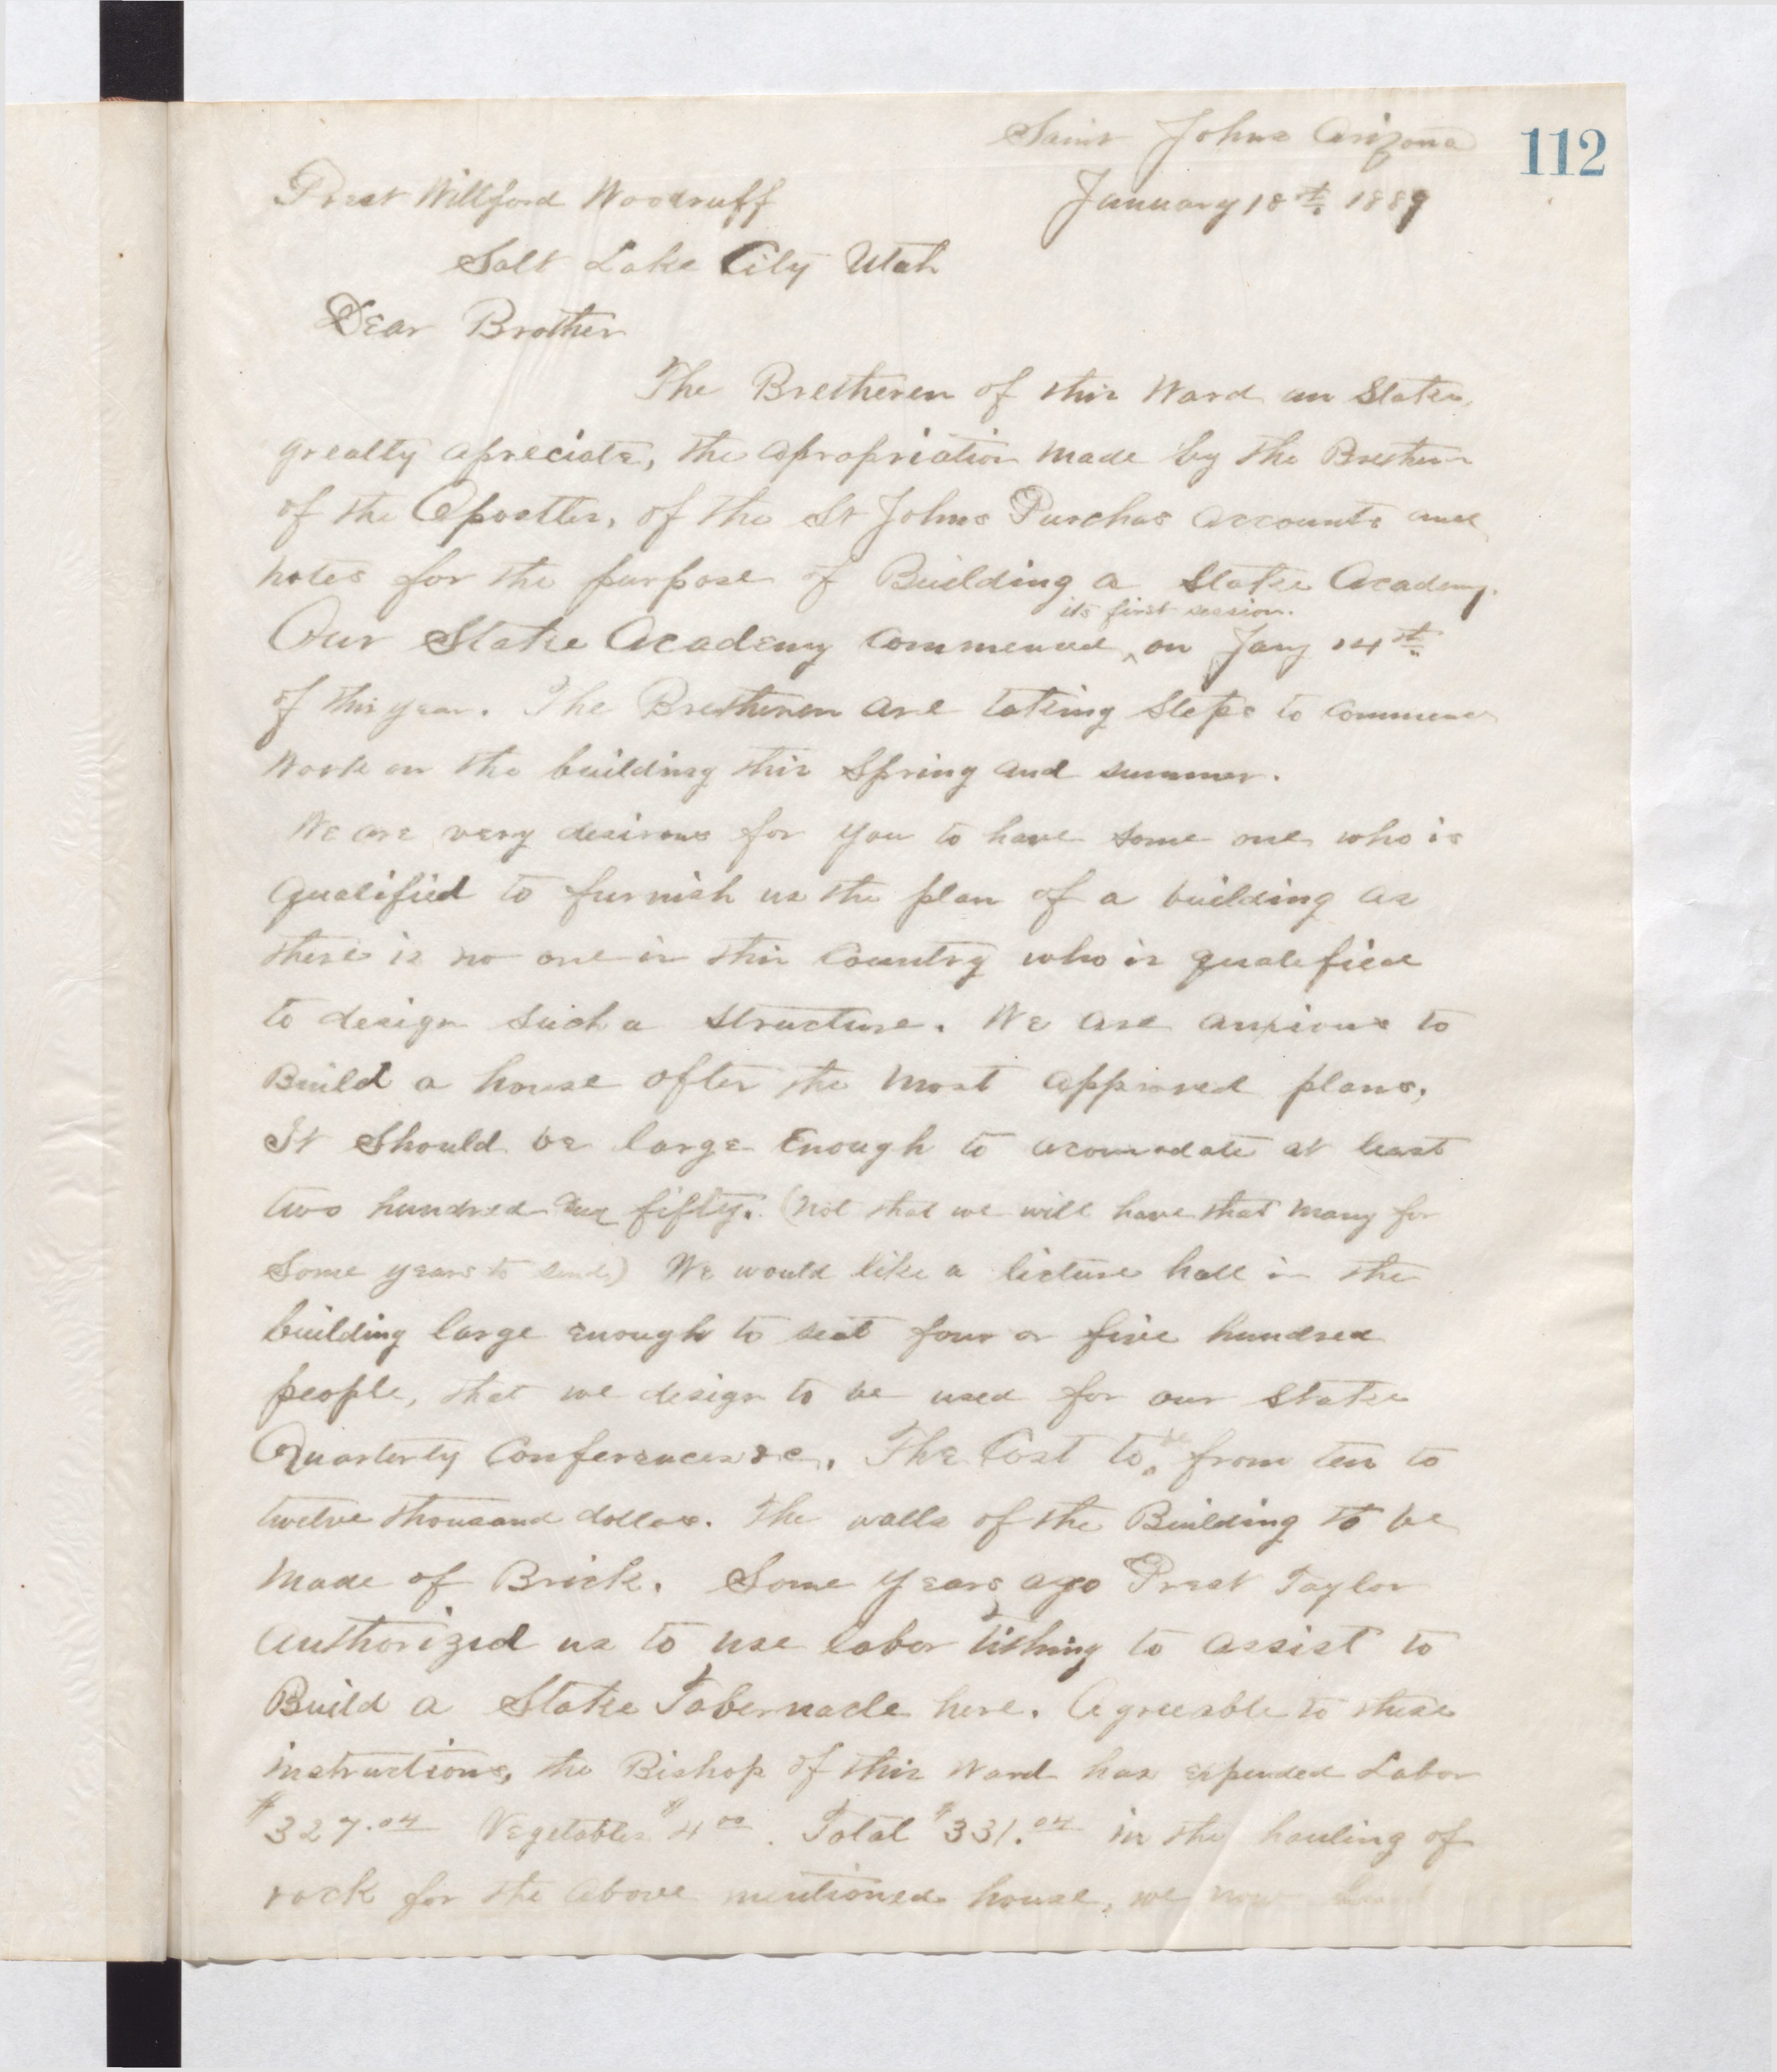 Saint Johns Arizona
112
Prest Willford Woodruff January 18th. 1889
Salt Lake City Utah
Dear Brother
The Bretheren of this Ward an Stake,
greatly apreciate, the apropriation made by the Brethern
of the Apostles, of the St Johns Purchas accounts and
notes for the purpose of Building a Stake Academy.
its first session.
Our Stake Academy Commenced ^ on Jany 14st.
of this year. The Bretheren are taking Steps to commence
Work on the building this Spring and summer.
We are very desirous for you to have some one who is
qualified to furnish us the plan of a building as
there is no one in this Country who is qualified
to design such a structure. We are anxious to
Build a house after the most approved plans,
It should be large Enough to acomodate at least
two hundred and fifty. (Not that we will have that many for
Some years to ) We would like a licture hall in the
building large enough to seat four or five hundred
people, that we design to be used for our Stake
Quarterly Conferences &c. The Cost to ^be from ten to
twelve thousand dollars. The walls of the Building to be
made of Brick. Some years ago Prest Taylor
authorized us to use labor tithing to assist to
Build a Stake Tabernacle here. Agreeable to these
instructions, the Bishop of this Ward has expended Labor
$327.04 Vegetables $4 00. Total $331.04 in the hauling of
rock for the above mentioned house, we now